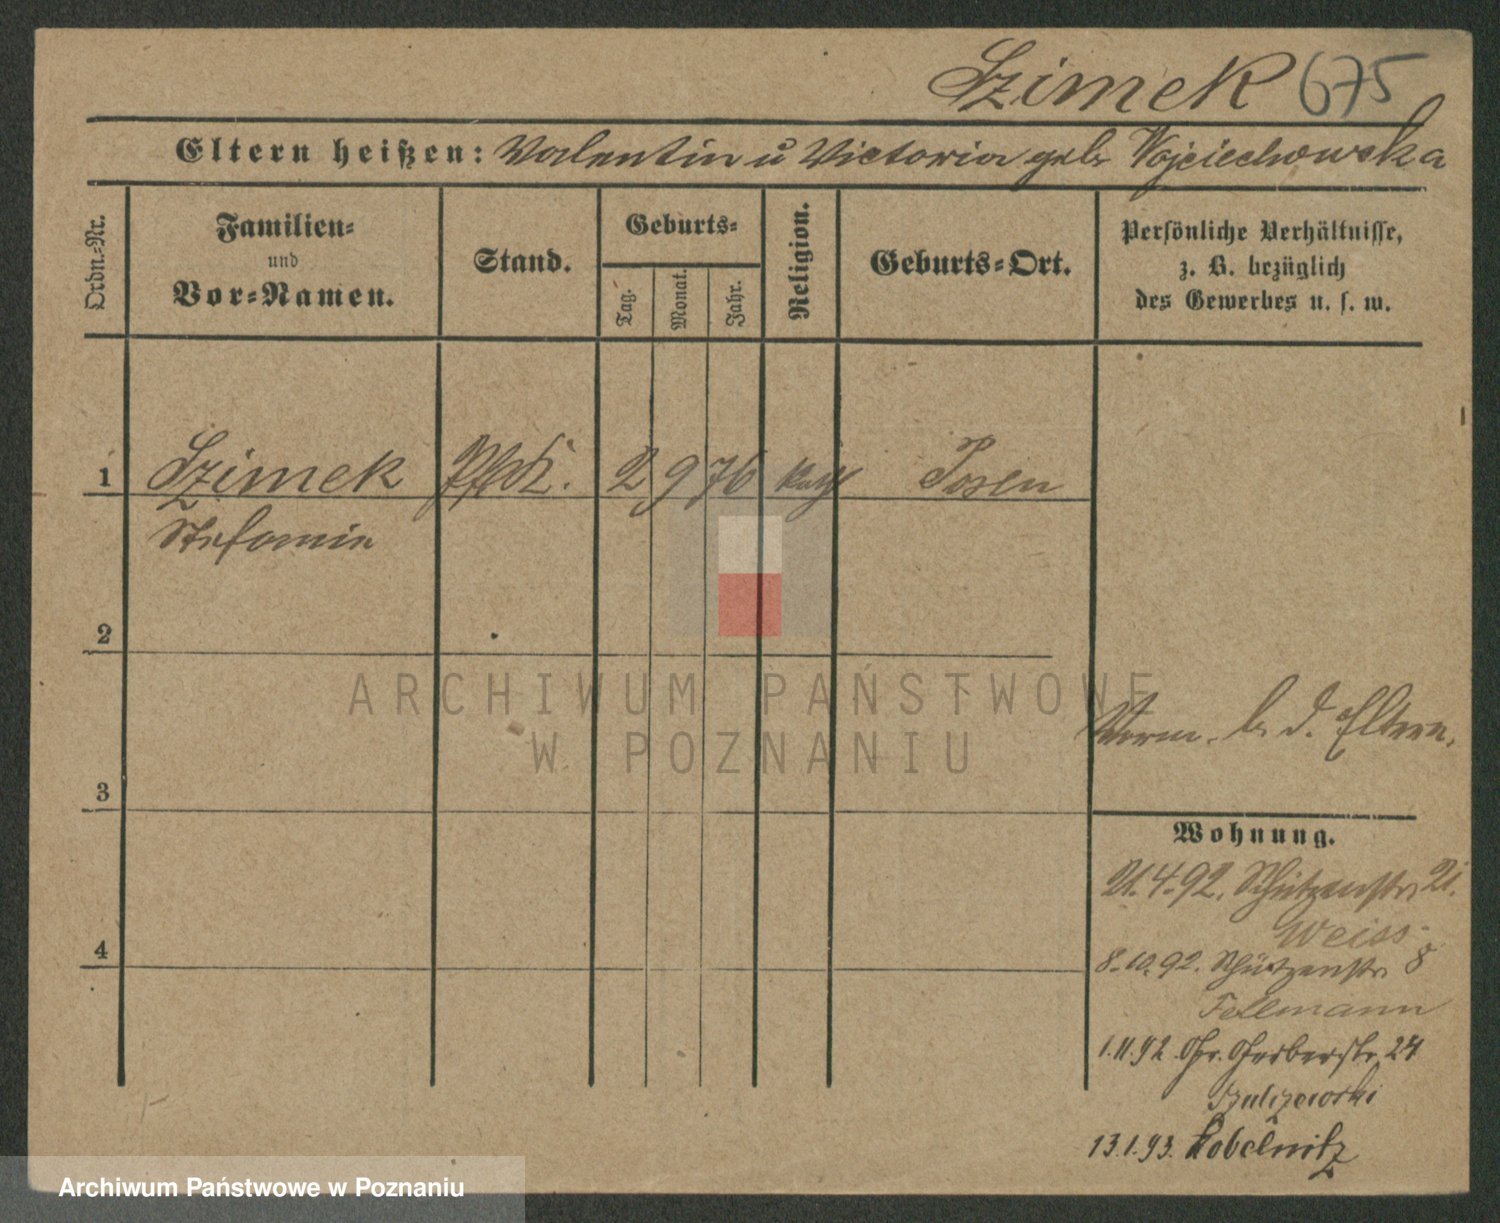 Szimek 675
Eltern heißen: Valentin u Victoria geb Wojciechowska
Ordn.-Nr.
Familien-
und
Vor-Namen.
Stand.
Geburts-
Tag.
Monat.
Jahr.
Religion.
Geburts-Ort.
Persönliche Verhältnisse,
z. B. bezüglich
des Gewerbes u. s. w.
1 Szimek 2 9 76 kath Posen
Stefanie
2
ARCHIWUM PAŃSTWOWE
W POZNANIU
Verm. b. d. Eltern.
3
Wohnung.
21.4.92. Schützenstr. 21.
Weiss
4
8.10.92. Schützenstr 8
Fellmann
1.11.92. Gr. Gerberstr. 24
13.1.93. Kobelnitz
Archiwum Państwowe w Poznaniu